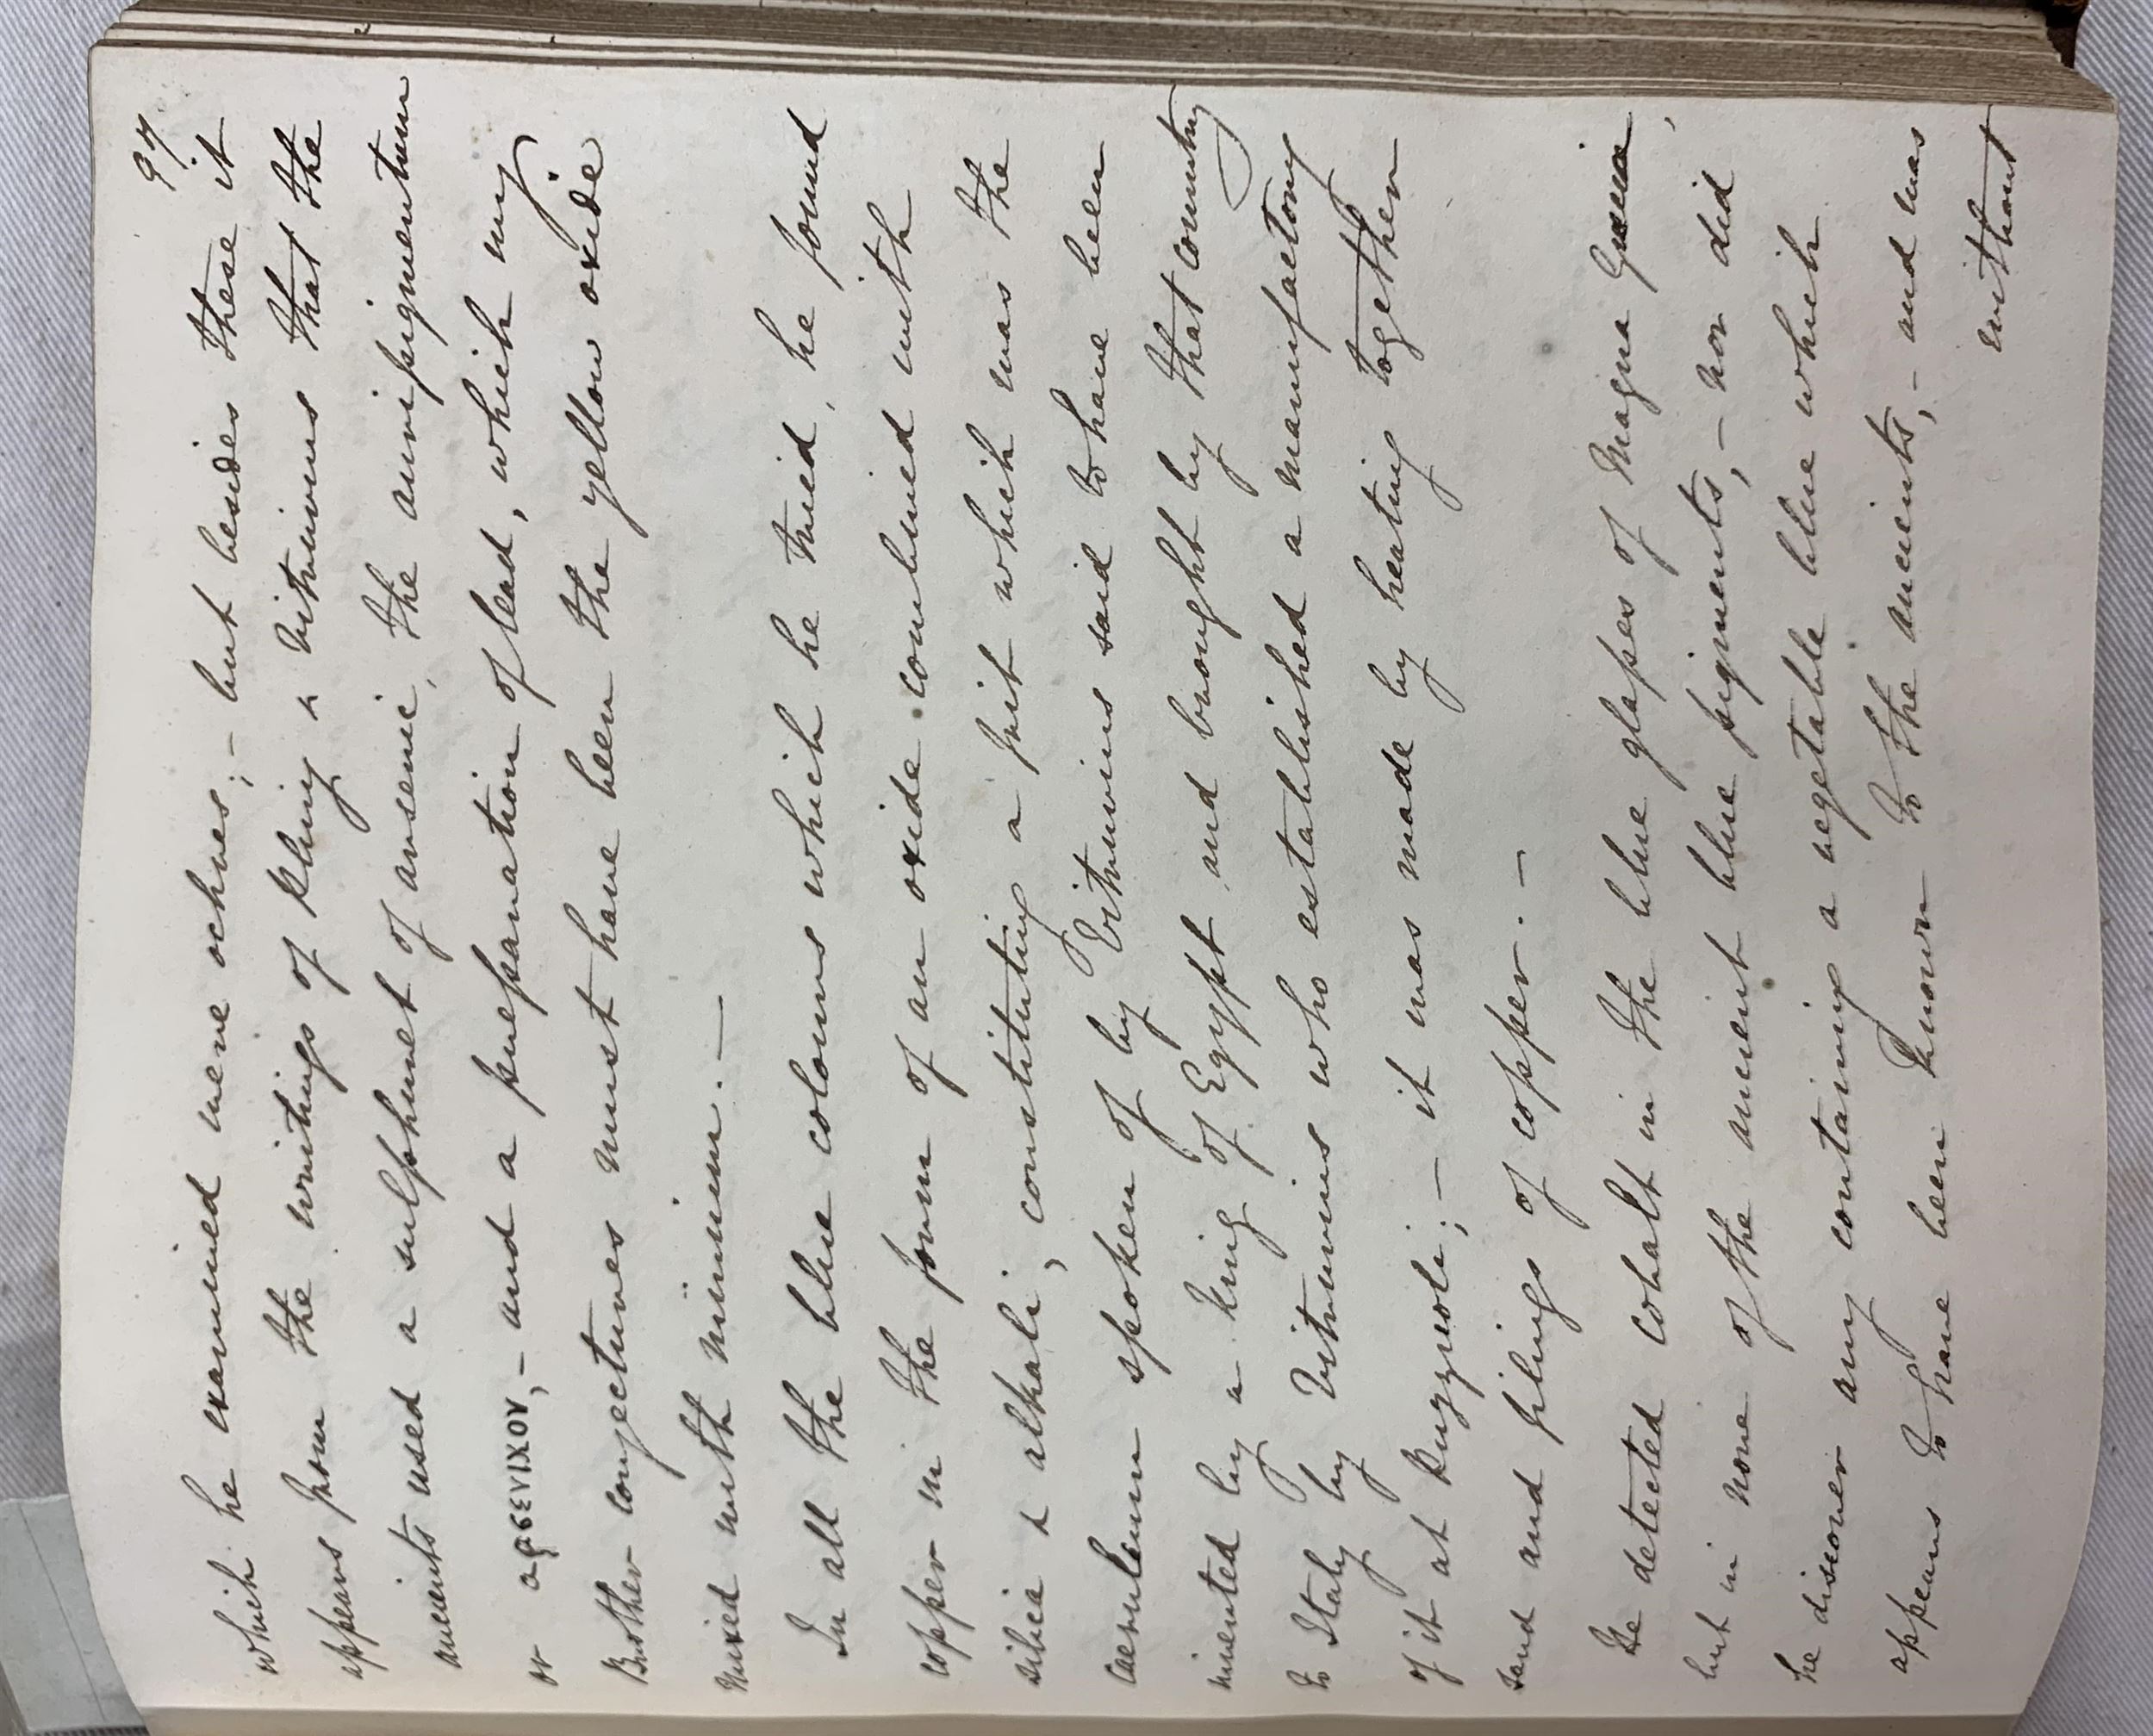 97.
which he examined were ochres; – but besides these it
appears from the writings of Pliny & Vitruvius that the
ancients used a sulphuret of arsenic, the auripigmentum
or αρσενιχον, – and a preparation of lead, which my
Brother conjectures must have been the yellow oxide
mixed with minium. —
In all the blue colours which he tried, he found
copper in the form of an oxide combined with
silica & alkali, constituting a frit which was the
caeruleum spoken of by Vitruvius said to have been
invented by a King of Egypt and brought by that country
to Italy by Vitruvius who established a manufactory
of it at Puzzuoli; – it was made by heating together
sand and filings of copper. –
He detected cobalt in the blue glasses of Magna Grecia,
but in none of the ancient blue pigments, – nor did
he discover any containing a vegetable blue which
appears to have been known to the ancients, – and was
without